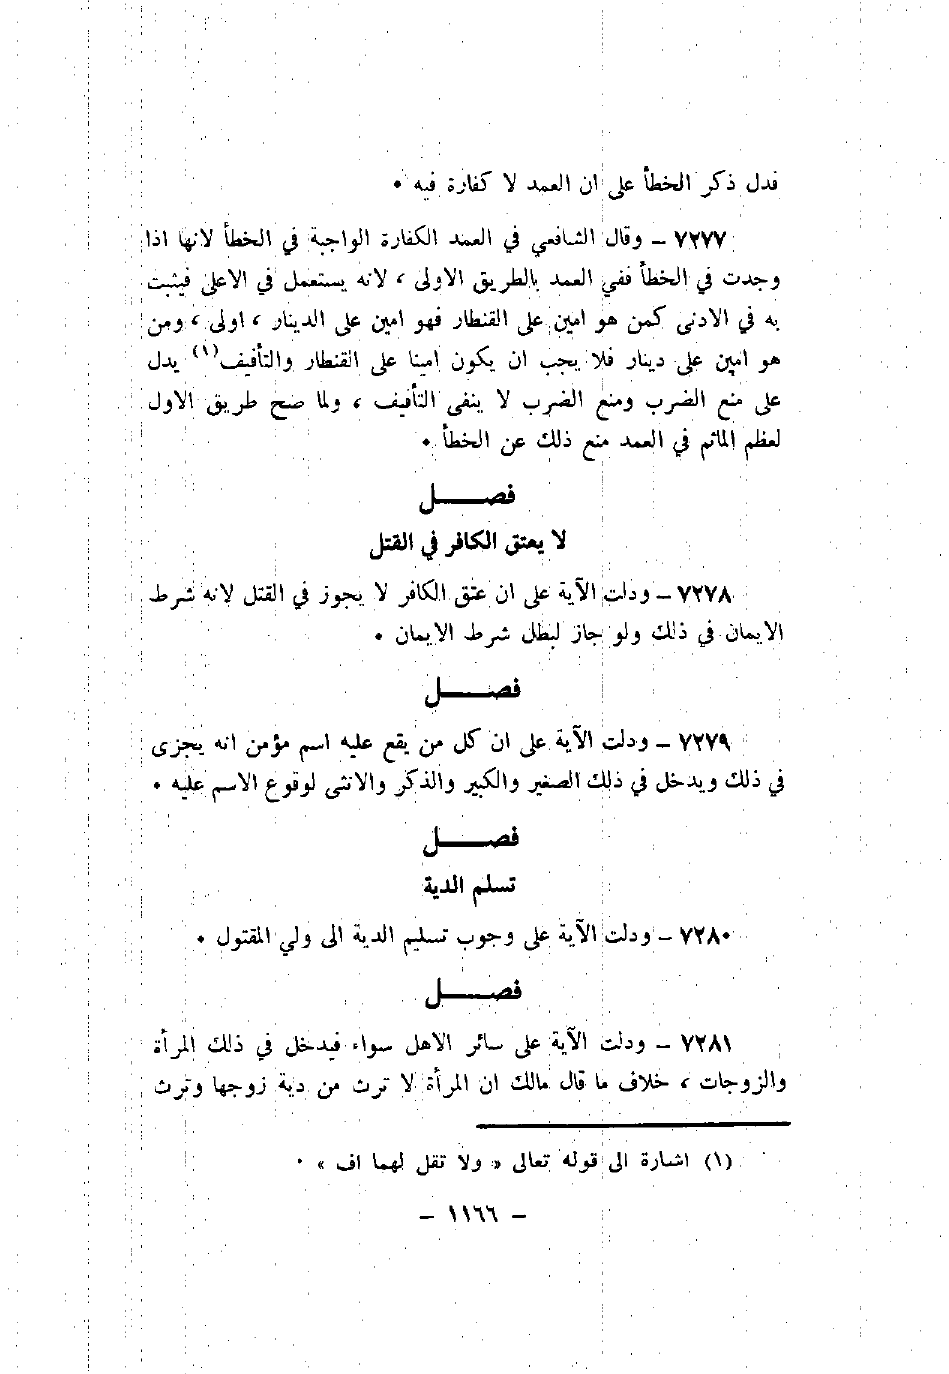 فدل ذكر الخطأ على ان العمد لا كفارة فيه .
٧٢٧٧ – وقال الشافعي في العمد الكفارة الواجبة في الخطأ لانها اذا
وجدت في الخطأ ففي العمد بالطريق الاولى ، لانه يستعمل في الاعلى فيثبت
به في الادنى كمن هو امين على القنطار فهو امين على الدينار ، اولى ، ومن
هو امين على دينار فلا يجب ان يكون امينا على القنطار والتأفيف(١) يدل
على منع الضرب ومنع الضرب لا ينفى التأفيف ، ولما صح طريق الاول
لعظم المائم في العمد منع ذلك عن الخطأ .
فصـــــل
لا يعتق الكافر في القتل
٧٢٧٨ – ودلت الآية على ان عتق الكافر لا يجوز في القتل لانه شرط
الايمان في ذلك ولو جاز لبطل شرط الايمان .
فصـــــل
٧٢٧٩ – ودلت الآية على ان كل من يقع عليه اسم مؤمن انه يجزى
في ذلك ويدخل في ذلك الصغير والكبير والذكر والانثى لوقوع الاسم عليه .
فصـــــل
تسلم الدية
٧٢٨٠ – ودلت الآية على وجوب تسليم الدية الى ولي المقتول .
فصـــــل
٧٢٨١ – ودلت الآية على سائر الاهل سواء فيدخل في ذلك المرأة
والزوجات ، خلاف ما قال مالك ان المرأة لا ترث من دية زوجها وترث
(١) اشارة الى قوله تعالى « ولا تقل لهما اف » .
– ١١٦٦ –